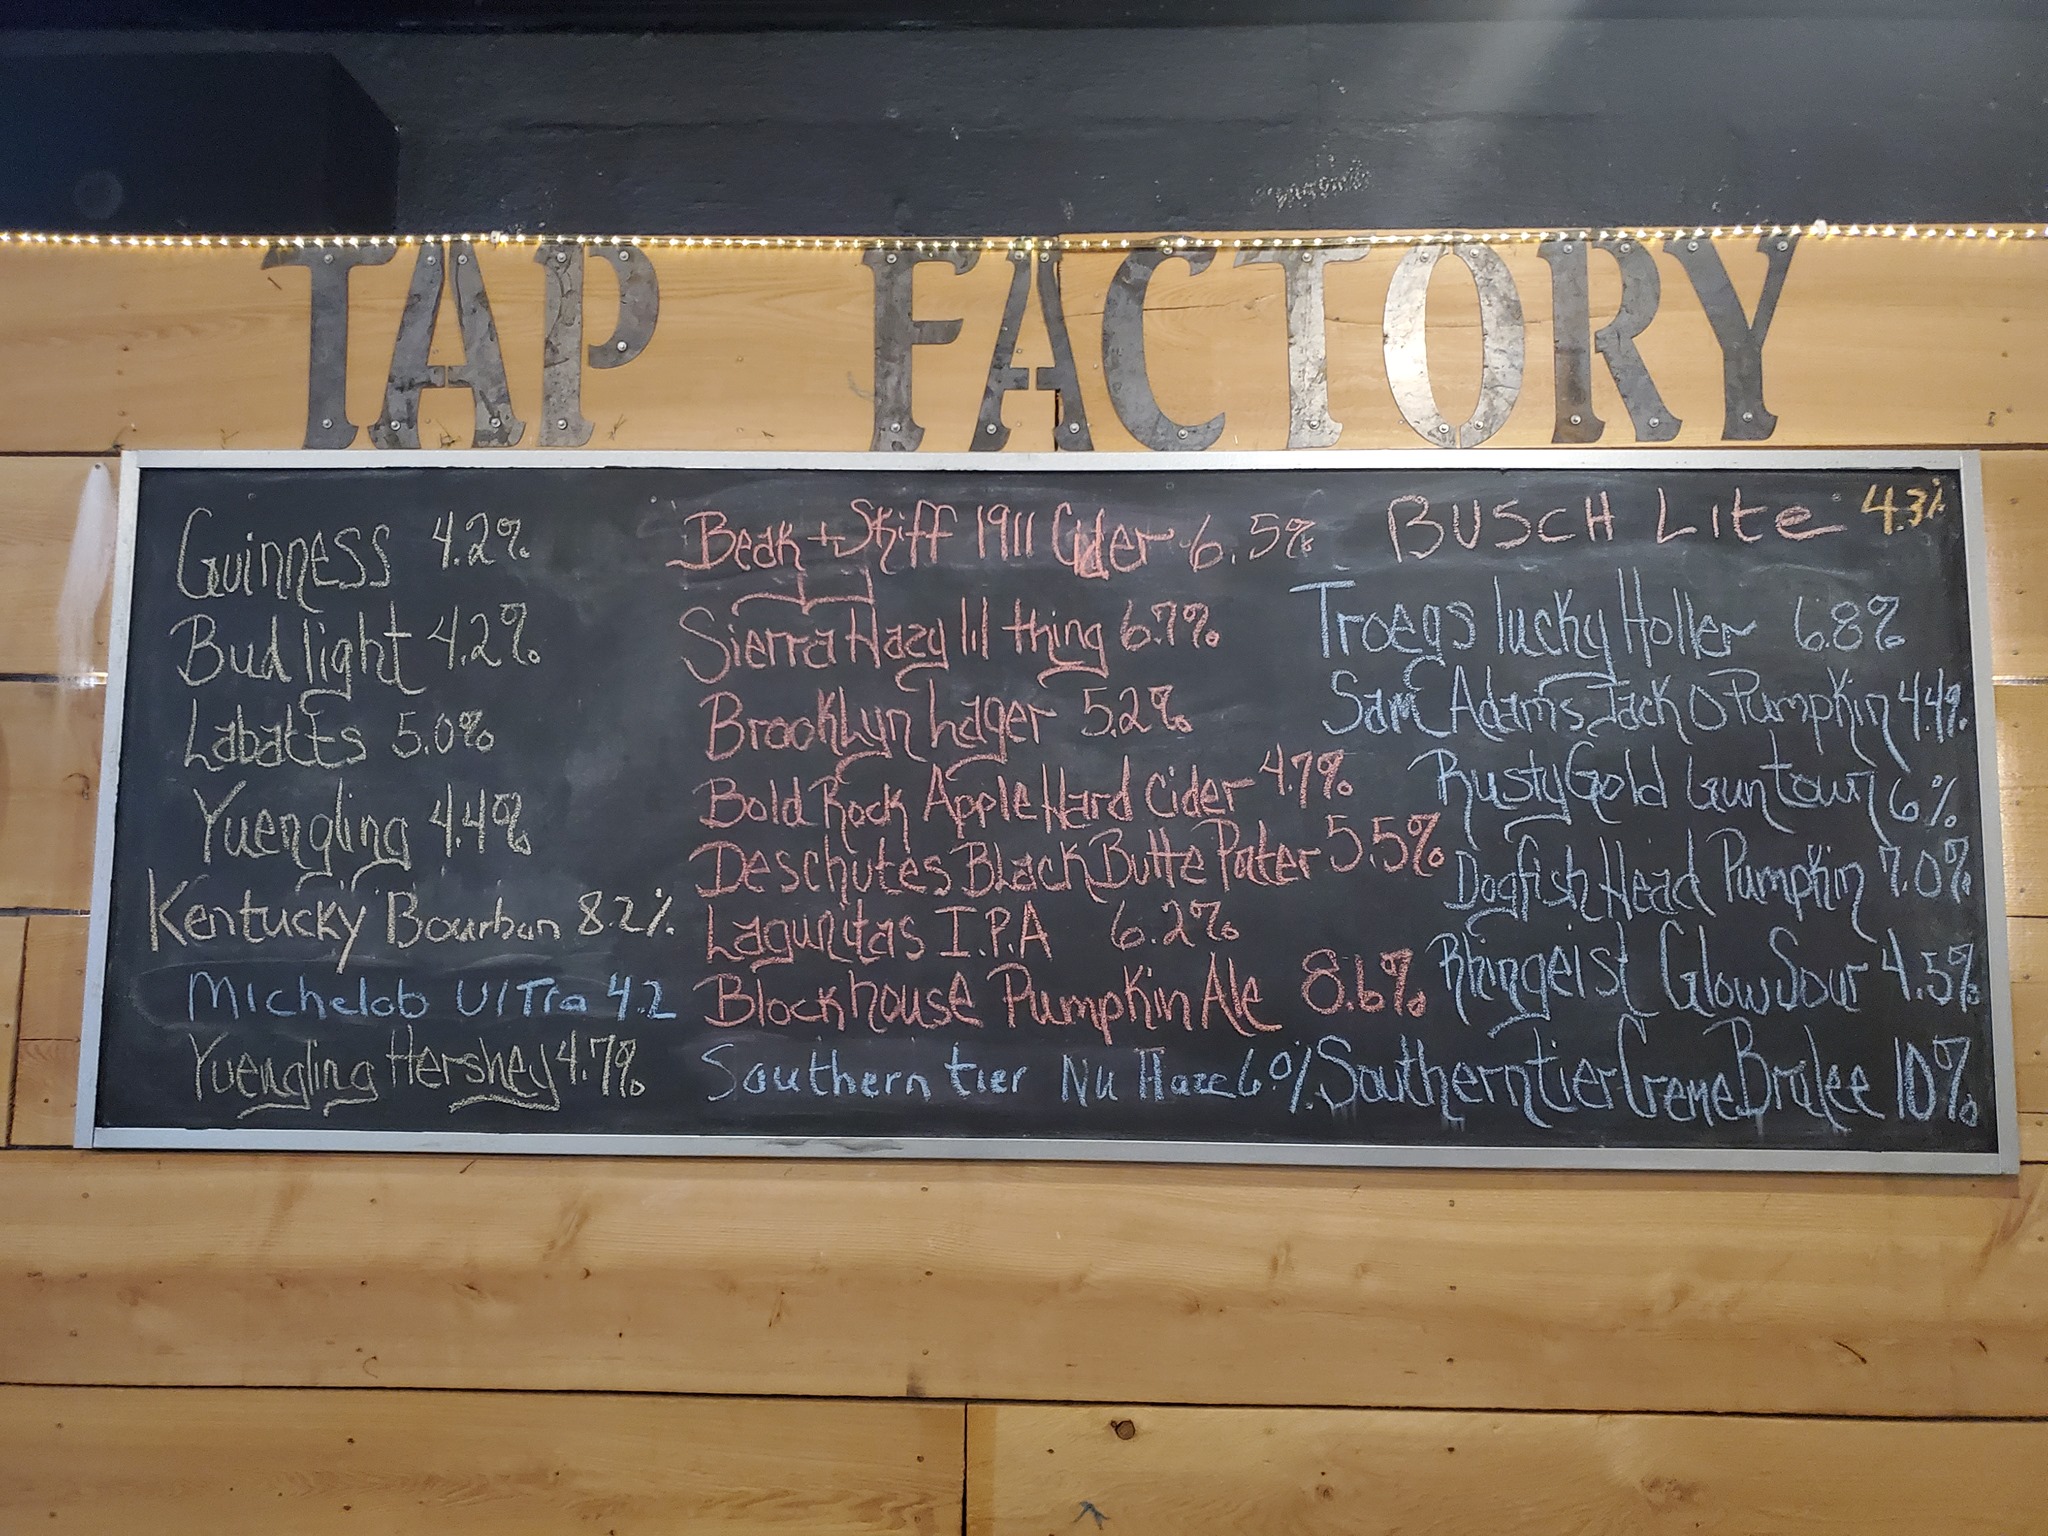 TAP FACTORY
Guinness 4.2%
Bud light 4.2%
Labatts 5.0%
Yuengling 4.4%
Kentucky Bourbon 8.2%
Michelob Ultra 4.2
Yuengling Hershey 4.7%
Beak + Skiff 1911 Cider 6.5%
Sierra Hazy lil thing 6.7%
Brooklyn Lager 5.2%
Bold Rock Apple Hard Cider 4.7%
Deschutes Black Butte Poter 5.5%
Lagunitas I.P.A 6.2%
Blockhouse Pumpkin Ale 8.6%
Southern tier Nu Haze 6.0%
BUSCH Lite 4.3%
Troegs lucky Holler 6.8%
Sam Adams Jack O Pumpkin 4.4%
Rusty Gold Guntown 6%
Dogfish Head Pumpkin 7.0%
Rhingeist Glow Sour 4.5%
Southerntier Creme Brulee 10%